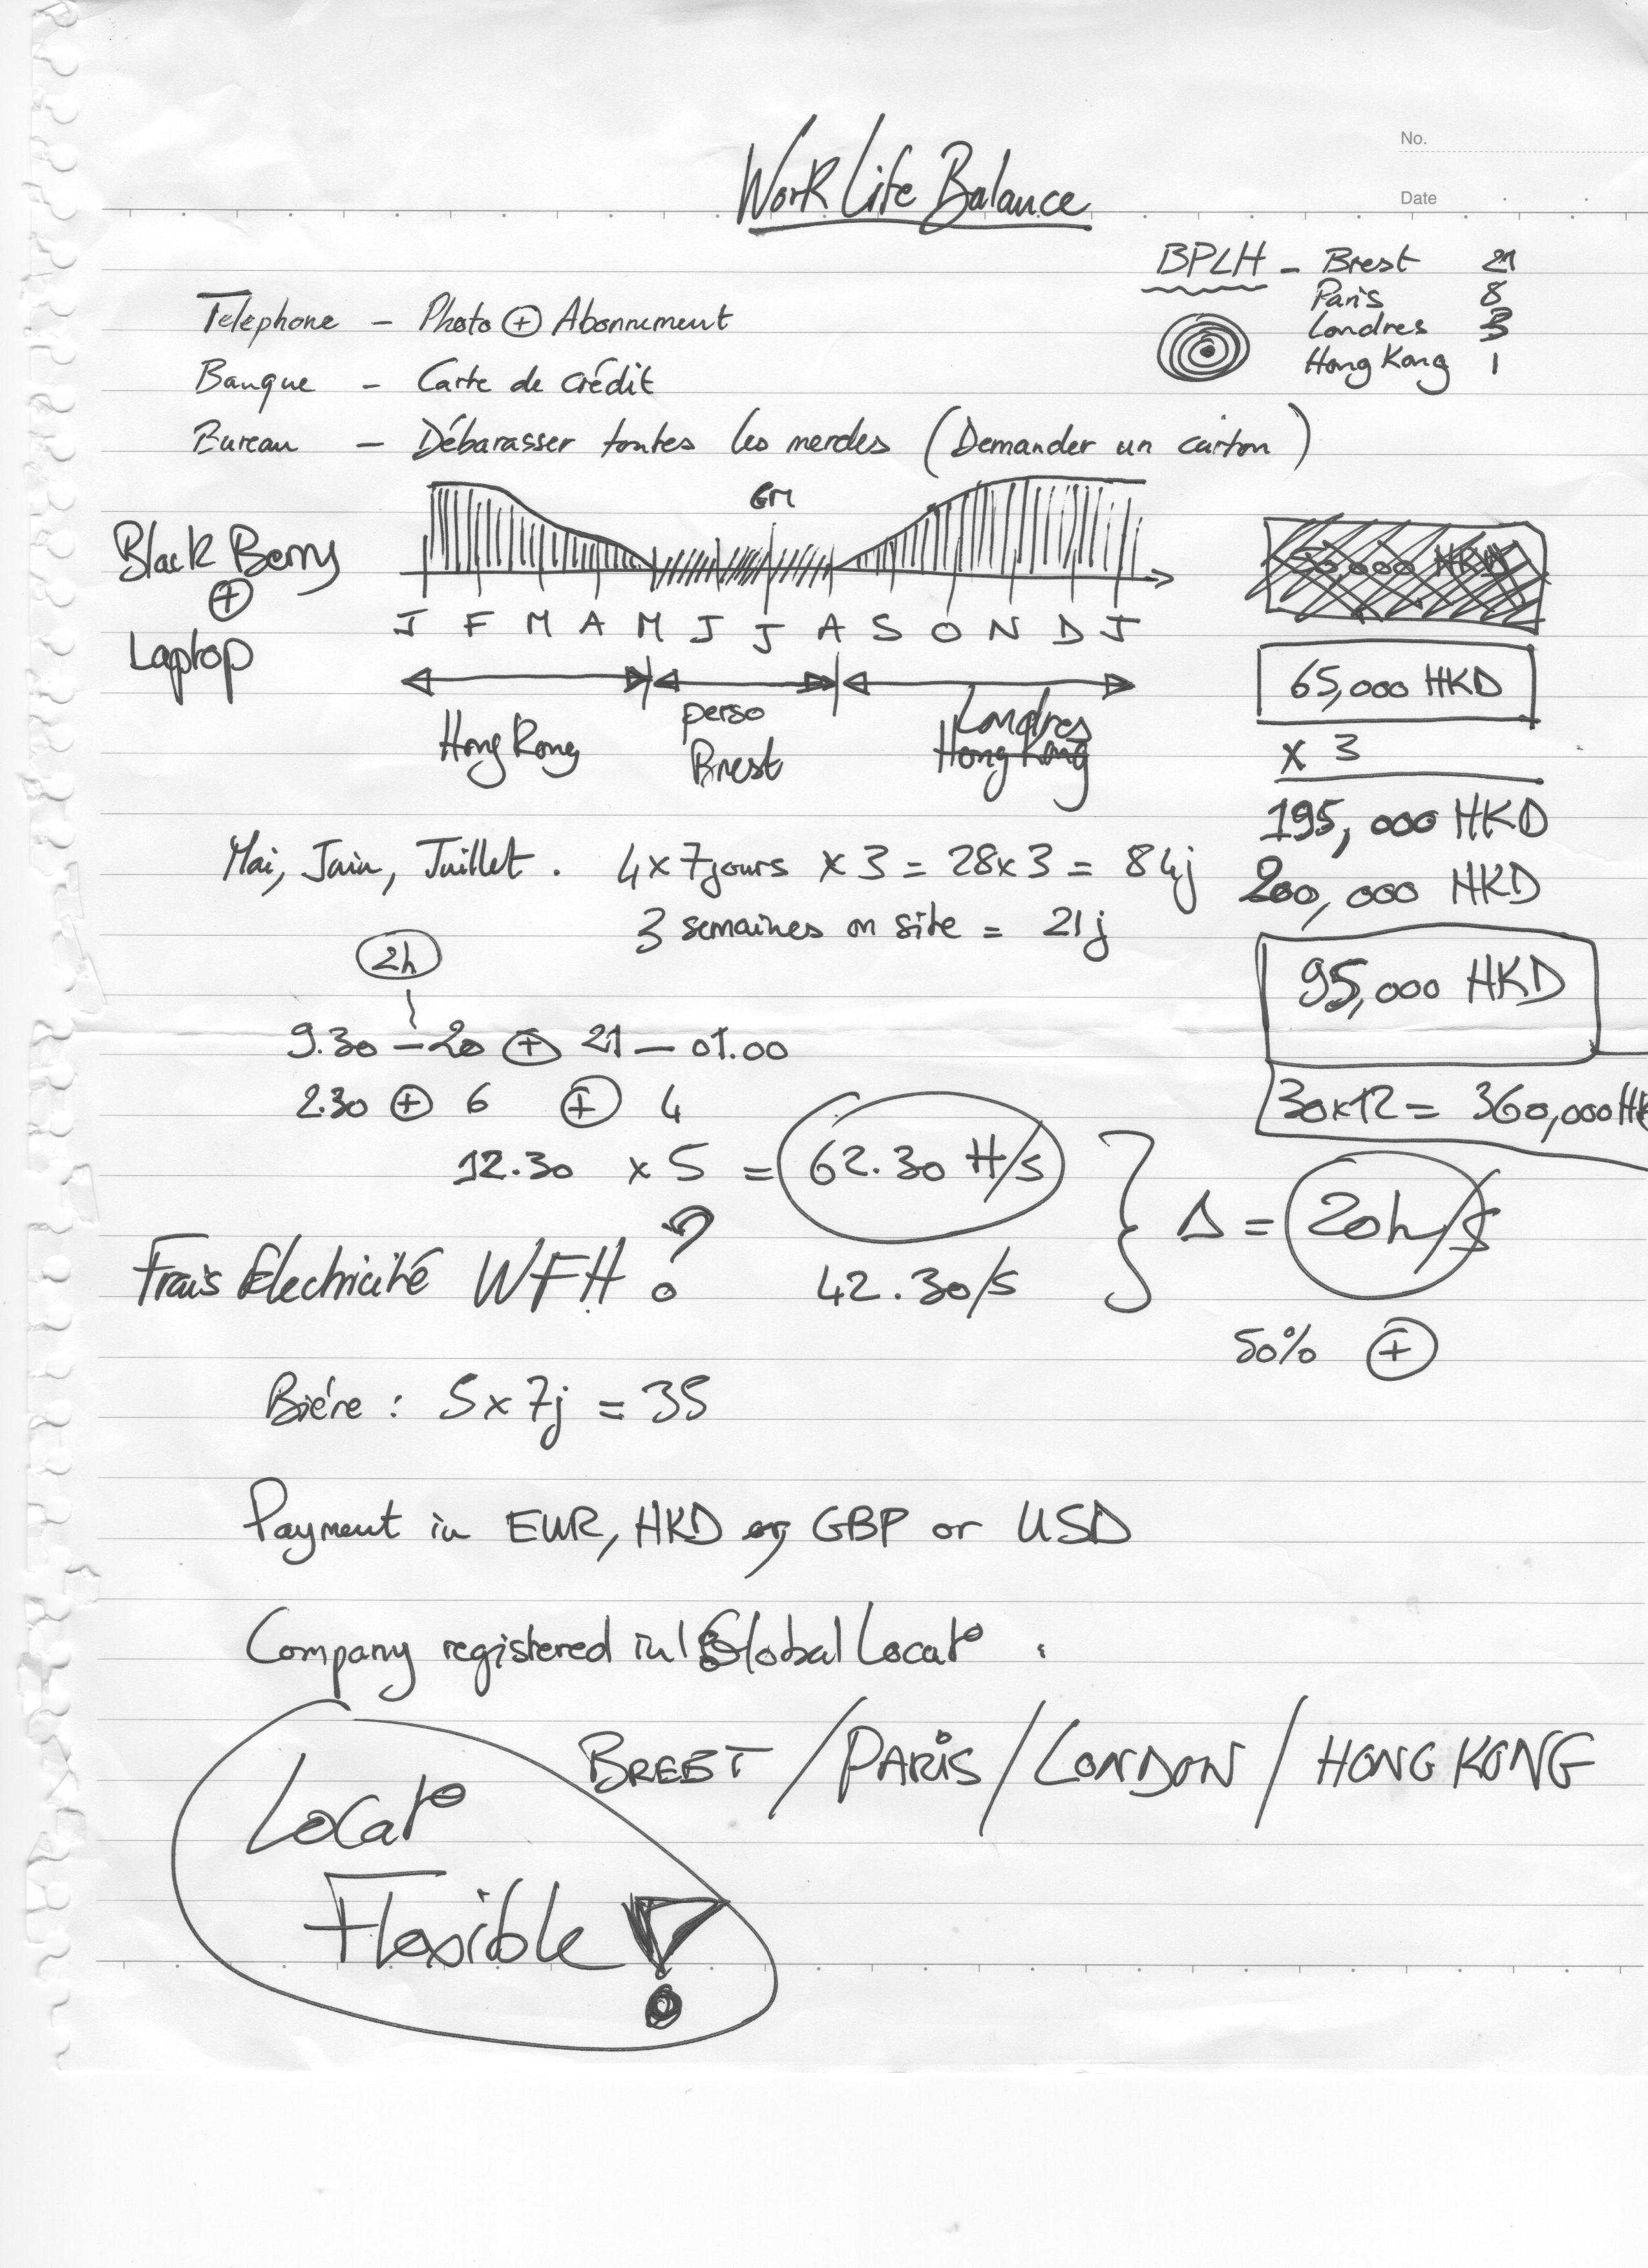 No.
Work Life Balance
Date
BPLH - Brest 21
Paris 8
Londres
Hong Kong 1
Telephone - Photo + Abonnement
Banque - Carte de crédit
Bureau - Débarasser toutes les merdes (Demander un carton)
6M
Black Berry
+
Laptop
J F M A M J J A S O N D J
Hong Kong
perso
Brest
Londres
Hong Kong
65,000 HKD
x 3
195,000 HKD
200,000 HKD
95,000 HKD
30x12 = 360,000 HK
Mai, Juin, Juillet. 4x7jours x 3 = 28x3 = 84j
3 semaines on site = 21j
2h
9.30 - 20 + 21 - 01.00
2.30 + 6 + 4
12.30 x 5 = 62.30 H/s
Δ = 20h/s
Frais Electricité WFH ? 42.30/s
50% +
Biére : 5x7j = 35
Payment in EUR, HKD or, GBP or USD
Company registered in Global Locat° :
BREST / PARIS / LONDON / HONG KONG
Locat°
Flexible !